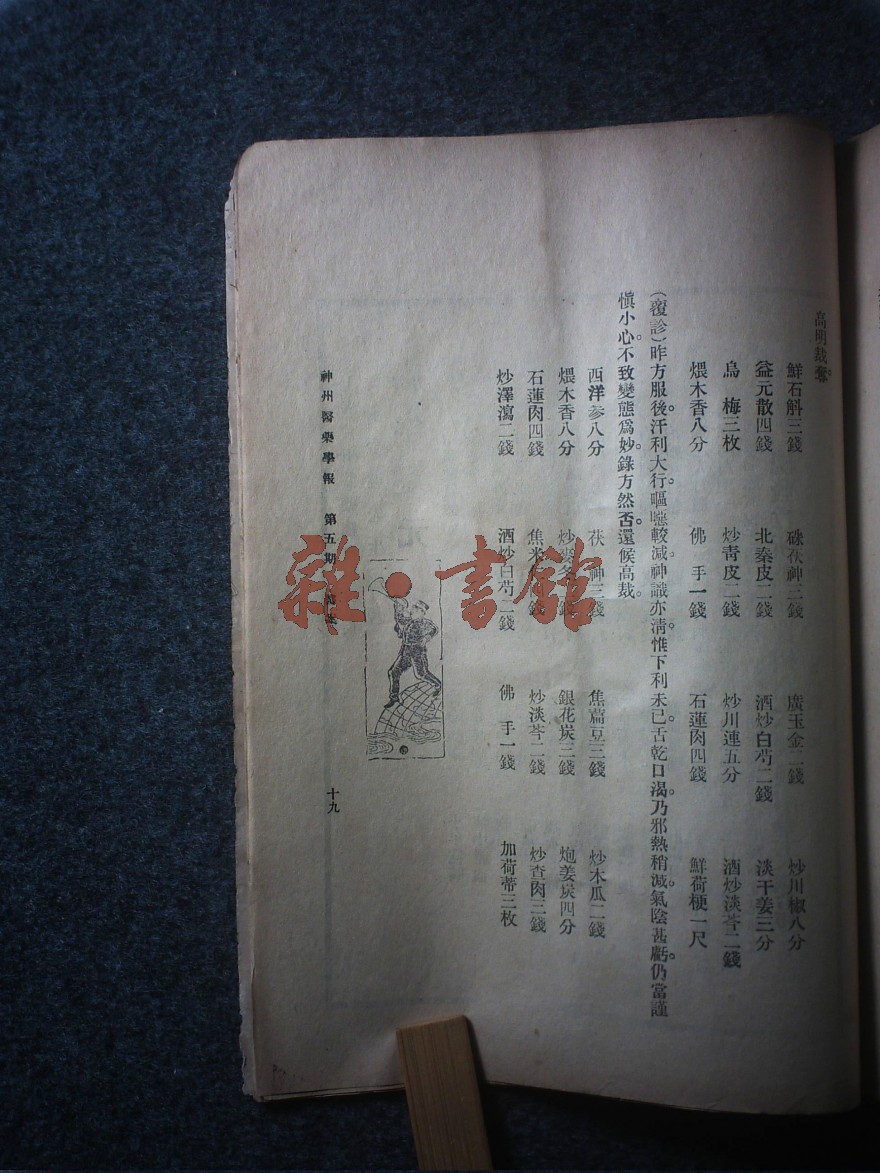 高明裁奪。
鮮石斛三錢 硃茯神三錢 廣玉金二錢 炒川椒八分
益元散四錢 北秦皮二錢 酒炒白芍二錢 淡干姜三分
烏梅三枚 炒青皮二錢 炒川連五分 酒炒淡芩二錢
煨木香八分 佛手一錢 石蓮肉四錢 鮮荷梗一尺
(覆診)昨方服後。汗利大行。嘔噁較減。神識亦清。惟下利未已。舌乾口渴。乃邪熱稍減。氣陰甚虧。仍當謹
慎小心。不致變態爲妙。錄方然否。還候高裁。
西洋參八分 茯神三錢 焦扁豆三錢 炒木瓜二錢
煨木香八分 炒麥冬 錢 銀花炭三錢 炮姜炭四分
石蓮肉四錢 焦米 錢 炒淡芩二錢 炒查肉三錢
炒澤瀉二錢 酒炒白芍二錢 佛手一錢 加荷蒂三枚
神州醫藥學報 第五期
十九
雜·書館